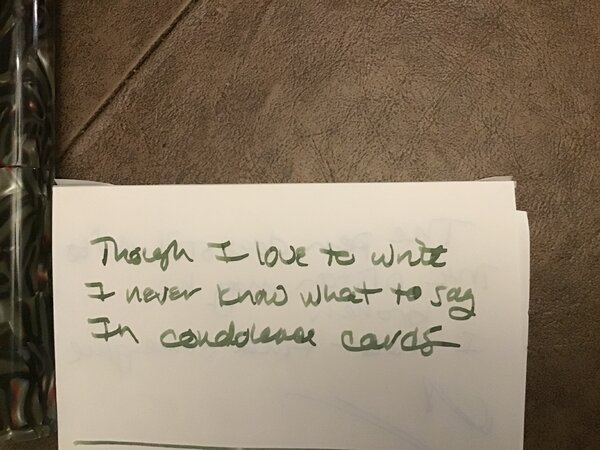 Though I love to write
I never know what to say
In condolence cards